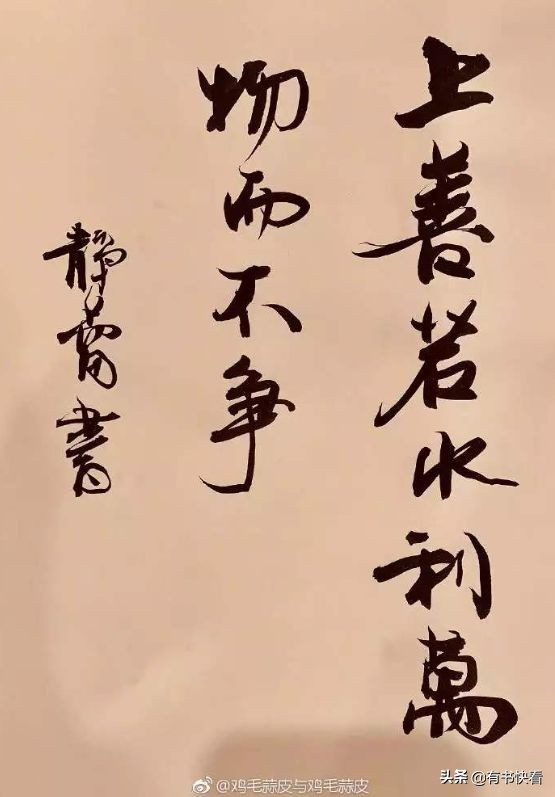 上善若水利萬
物而不争
静蕾書
@鸡毛蒜皮与鸡毛蒜皮
头条 @有书快看